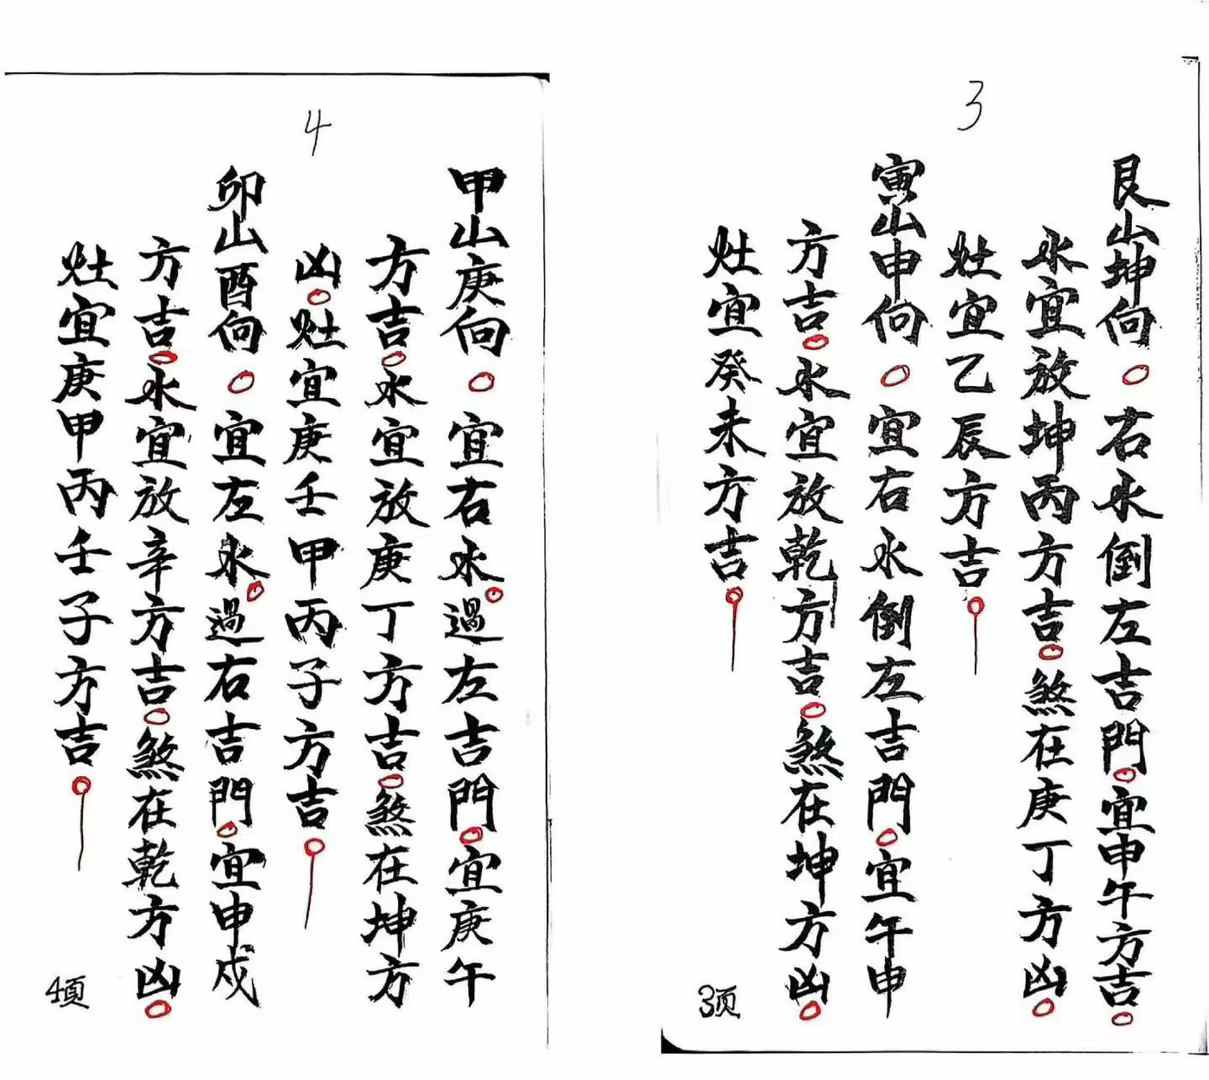 3
艮山坤向○右水倒左吉門○宜申午方吉○
水宜放坤丙方吉○煞在庚丁方凶○
灶宜乙辰方吉○
寅山申向○宜右水倒左吉門○宜午申
方吉○水宜放乾方吉○煞在坤方凶○
灶宜癸未方吉○
3页
4
甲山庚向○宜右水○過左吉門○宜庚午
方吉○水宜放庚丁方吉○煞在坤方
凶○灶宜庚壬甲丙子方吉○
卯山酉向○宜左水○過右吉門○宜申戌
方吉○水宜放辛方吉○煞在乾方凶○
灶宜庚甲丙壬子方吉○
4页